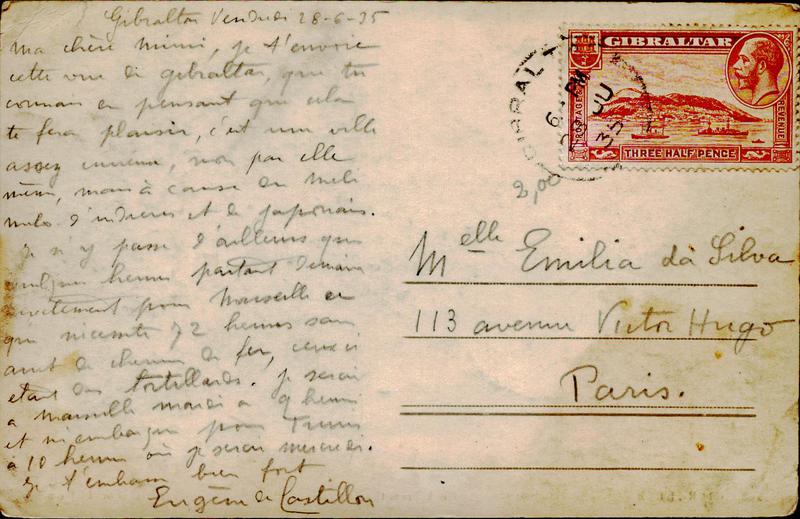 Gibraltar Vendredi 28-6-35
Ma chère Mimi, je t'envoie
cette vue de gibraltar, que tu
connais en pensant que cela
te fera plaisir, c'est une ville
assez curieuse, non par elle
même, mais à cause du meli
melo d'indiens et de Japonais.
Je n'y passe d'ailleurs que
quelques heures partant demain
directement pour Marseille ce
qui nécessite 72 heures sans
arret de chemin de fer, ceux ci
étant des tortillards. Je serai
a Marseille mardi a 9 heures
et m'embarque pour Tunis
à 10 heures où je serai mercredi.
Je t'embrasse bien fort
Eugène de Castillon
GIBRALTAR
POSTAGE
REVENUE
THREE HALF PENCE
GIBRALTAR
6 - PM
JU
35
2,00
Melle Emilia da Silva
113 avenue Victor Hugo
Paris.